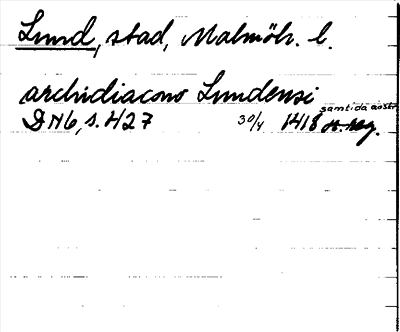 Lund, stad, Malmöh. l.
archidiacono Lundensi
samtida avskr.
DN 6, s. 427 30/4 1418 or. reg.